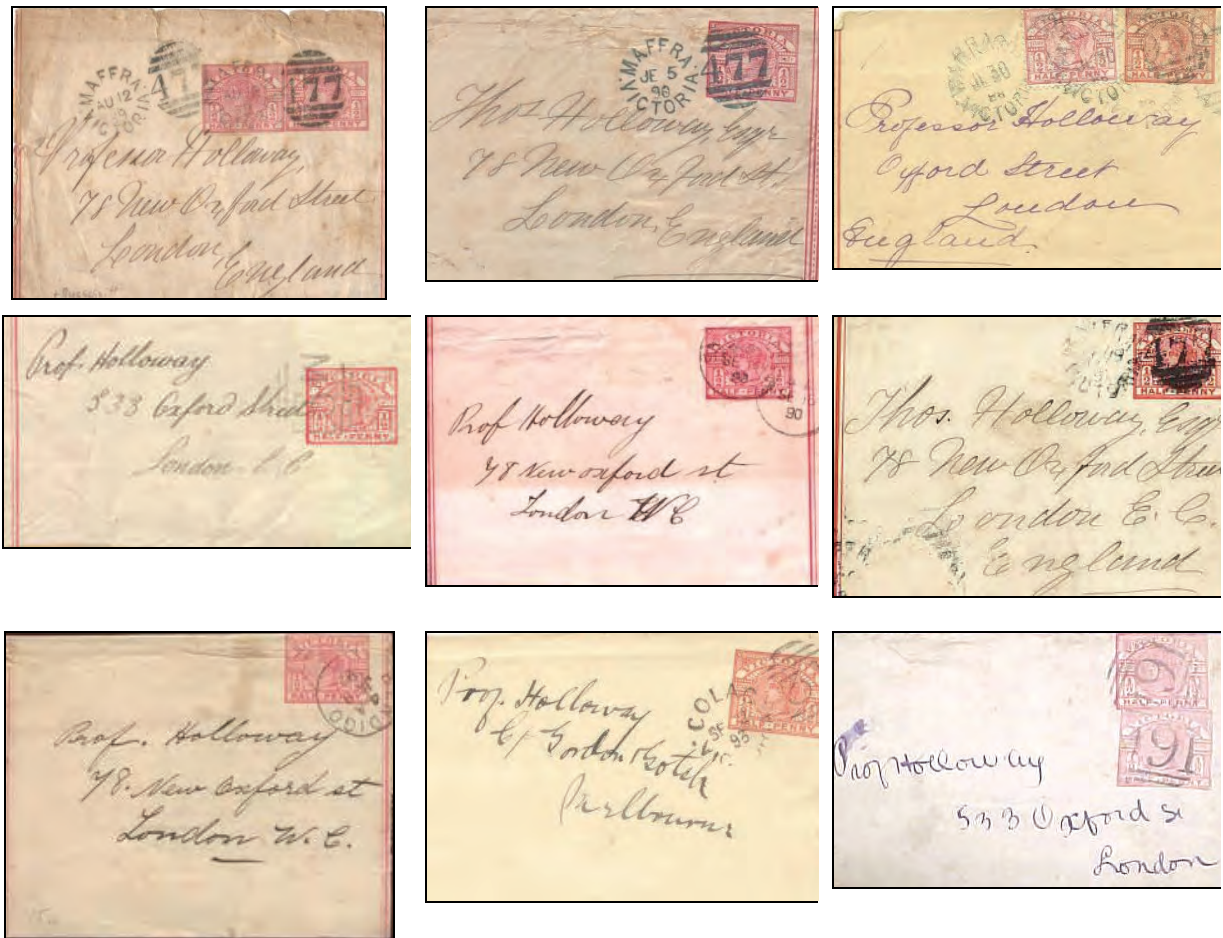 MAFFRA
AU 12
89
VICTORIA
477
HALF-PENNY
HALF-PENNY
Professor Holloway,
78 New Oxford Street
London,
England
MAFFRA
JE 5
90
VICTORIA
477
VICTORIA
Thos Holloway, Esqr
78 New Oxford St.
London, England
HALF-PENNY
HALF-PENNY
Professor Holloway
Oxford Street
London
England
Prof. Holloway
533 Oxford Street
London E C
HALF-PENNY
VICTORIA
HALF-PENNY
90
Prof Holloway
78 New Oxford st
London W C
HALF-PENNY
Thos. Holloway, Esqr
78 New Oxford Street
London E. C.
England
VICTORIA
HALF-PENNY
Prof. Holloway
78. New Oxford st
London W. C.
VICTORIA
HALF-PENNY
COLA
93
Prof. Holloway
C/ Gordon & Gotch
Melbourne
HALF-PENNY
VICTORIA
191
Prof Holloway
533 Oxford St
London